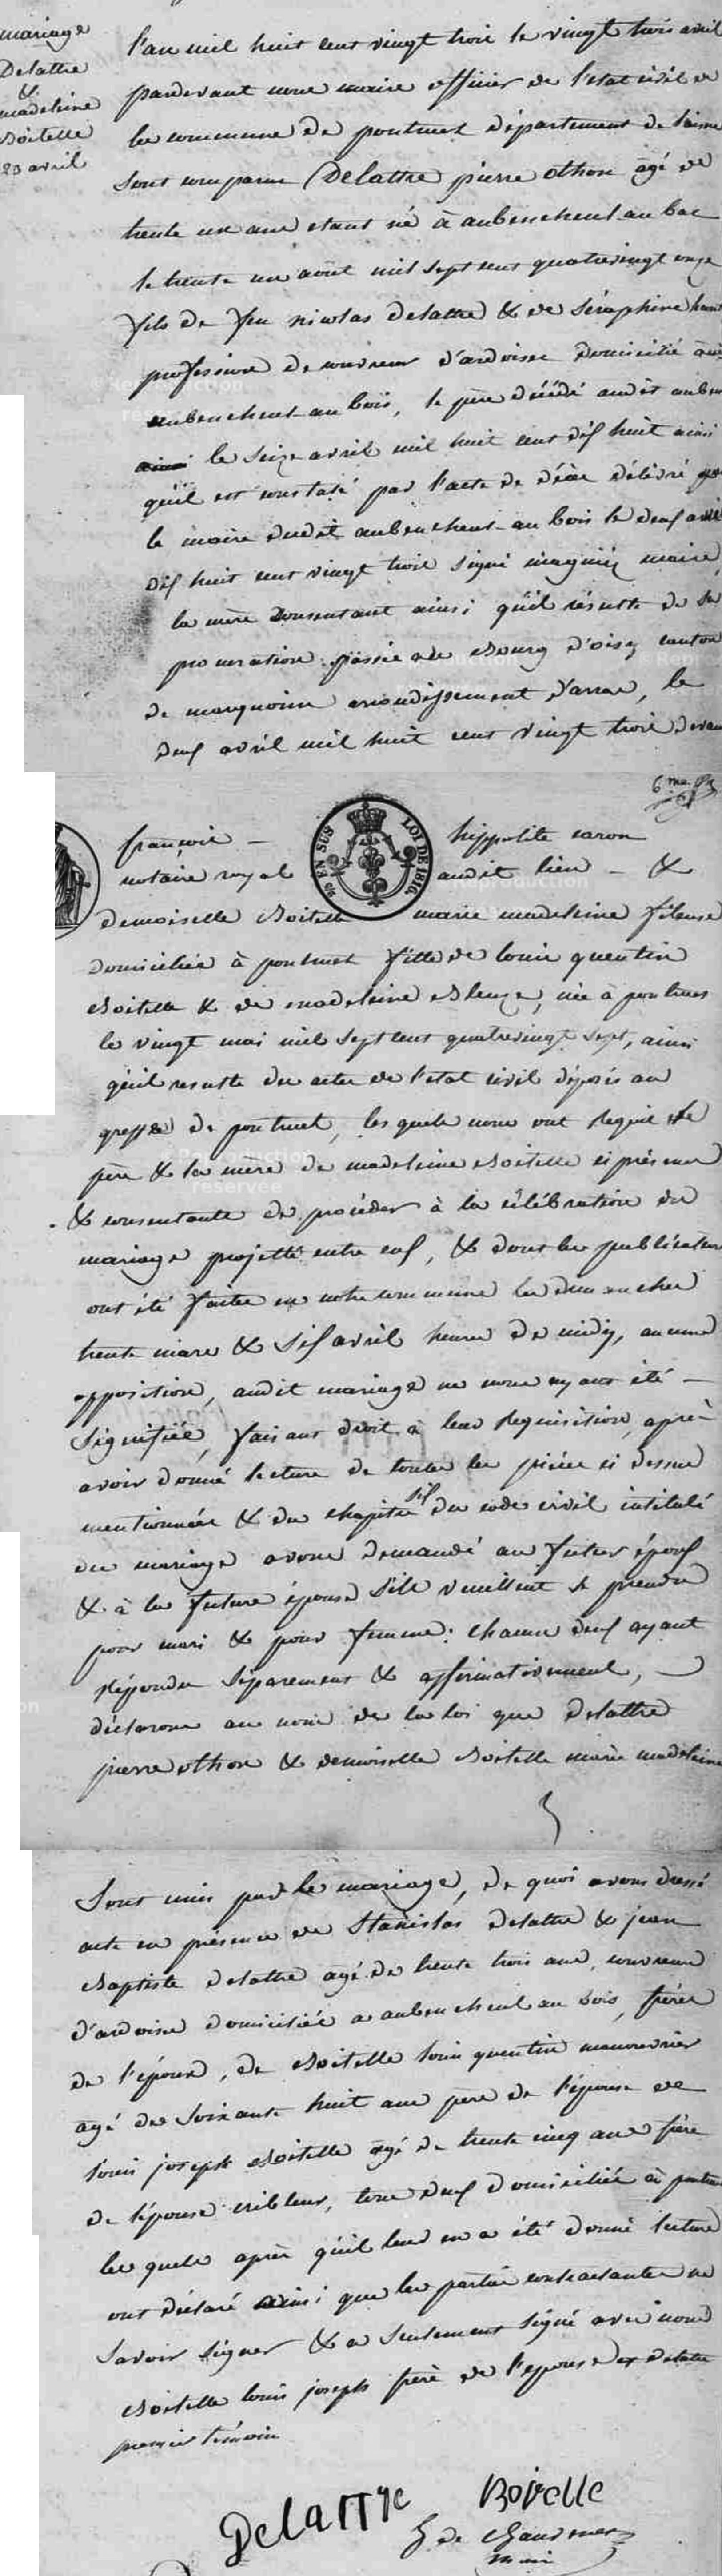 mariage
Delattre
&
madeleine
Boitelle
23 avril
l'an mil huit cent vingt trois le vingt trois avril
pardevant nous maire officier de l'etat civil de
la commune de pontruet département de l'aisne
sont comparus Delattre pierre othon agé de
trente un ans etant né à aubencheul au bac
le trente un aout mil sept cent quatrevingt onze
fils de feu nicolas delattre & de séraphine
profession de couvreur d'ardoises domicilié à
aubencheul au bois, le père décédé audit auben
le seize avril mil huit cent dix huit ainsi
qu'il est constaté par l'acte de décès délivré par
le maire dudit aubencheul au bois le deux avril
dix huit cent vingt trois signé magniez maire
la mère consentant ainsi qu'il résulte de sa
procuration passée a bourg d'oisy canton
de marquoin arrondissement d'arras, le
deux avril mil huit cent vingt trois devant
6me
françois - hippolite caron
notaire royal audit lieu - &
EN SUS LOI DE 1816
demoiselle Boitelle marie madeleine fileuse
domiciliée à pontruet fille de louis quentin
Boitelle & de madeleine Bleuze, née à pontruet
le vingt mai mil sept cent quatrevingt sept, ainsi
qu'il resulte des actes de l'etat civil déposés au
greffe de pontruet, les quels nous ont requis le
père & la mère de madeleine Boitelle ci présens
& consentants de procéder à la célébration du
mariage projetté entre eux, & dont les publications
ont été faites en notre commune les dimanches
trente mars & six avril heure de midy, aucune
opposition, audit mariage ne nous ayant été -
signifiée, faisant droit à leur requisition, après
avoir donné lecture de toutes les pièces ci dessus
mentionnées & du chapitre six du code civil intitulé
du mariage avons demandé au futur époux
& à la future épouse s'ils veuillent se prendre
pour mari & pour femme: chacun d'eux ayant
répondu séparement & affirmativement,
déclarons au nom de la loi que delattre
pierre othon & demoiselle Boitelle marie madeleine
sont unis par le mariage, de quoi avons dressé
acte en présence de Stanislas delattre & jean
Baptiste delattre agé de trente trois ans, couvreurs
d'ardoises domiciliés a aubencheul au bois, frères
de l'époux, de Boitelle louis quentin manouvrier
agé de soixante huit ans père de l'épouse de
louis joseph Boitelle agé de trente cinq ans frère
de l'épouse cribleur, tous deux domiciliés à pontruet
les quels après qu'il leur en a été donné lecture
ont déclaré ainsi que les parties contractantes ne
savoir signer & a seulement signé avec nous
Boitelle louis joseph frère de l'epouse et delattre
premier témoin
Delattre Boitelle
maire